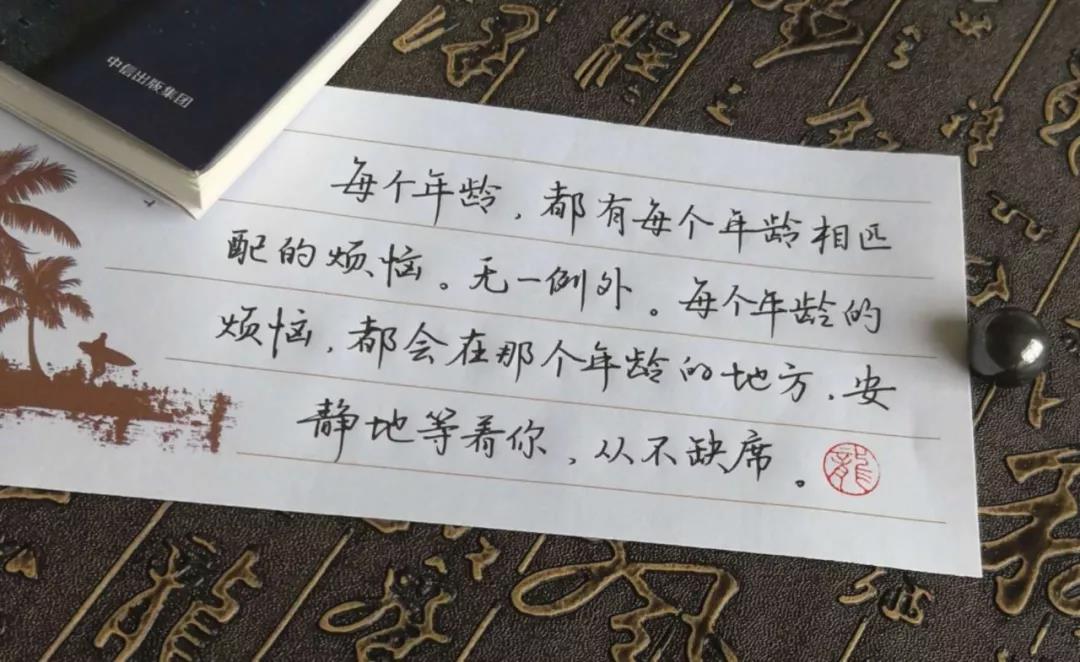 中信出版集团
每个年龄，都有每个年龄相匹
配的烦恼。无一例外。每个年龄的
烦恼，都会在那个年龄的地方，安
静地等着你，从不缺席。
龍